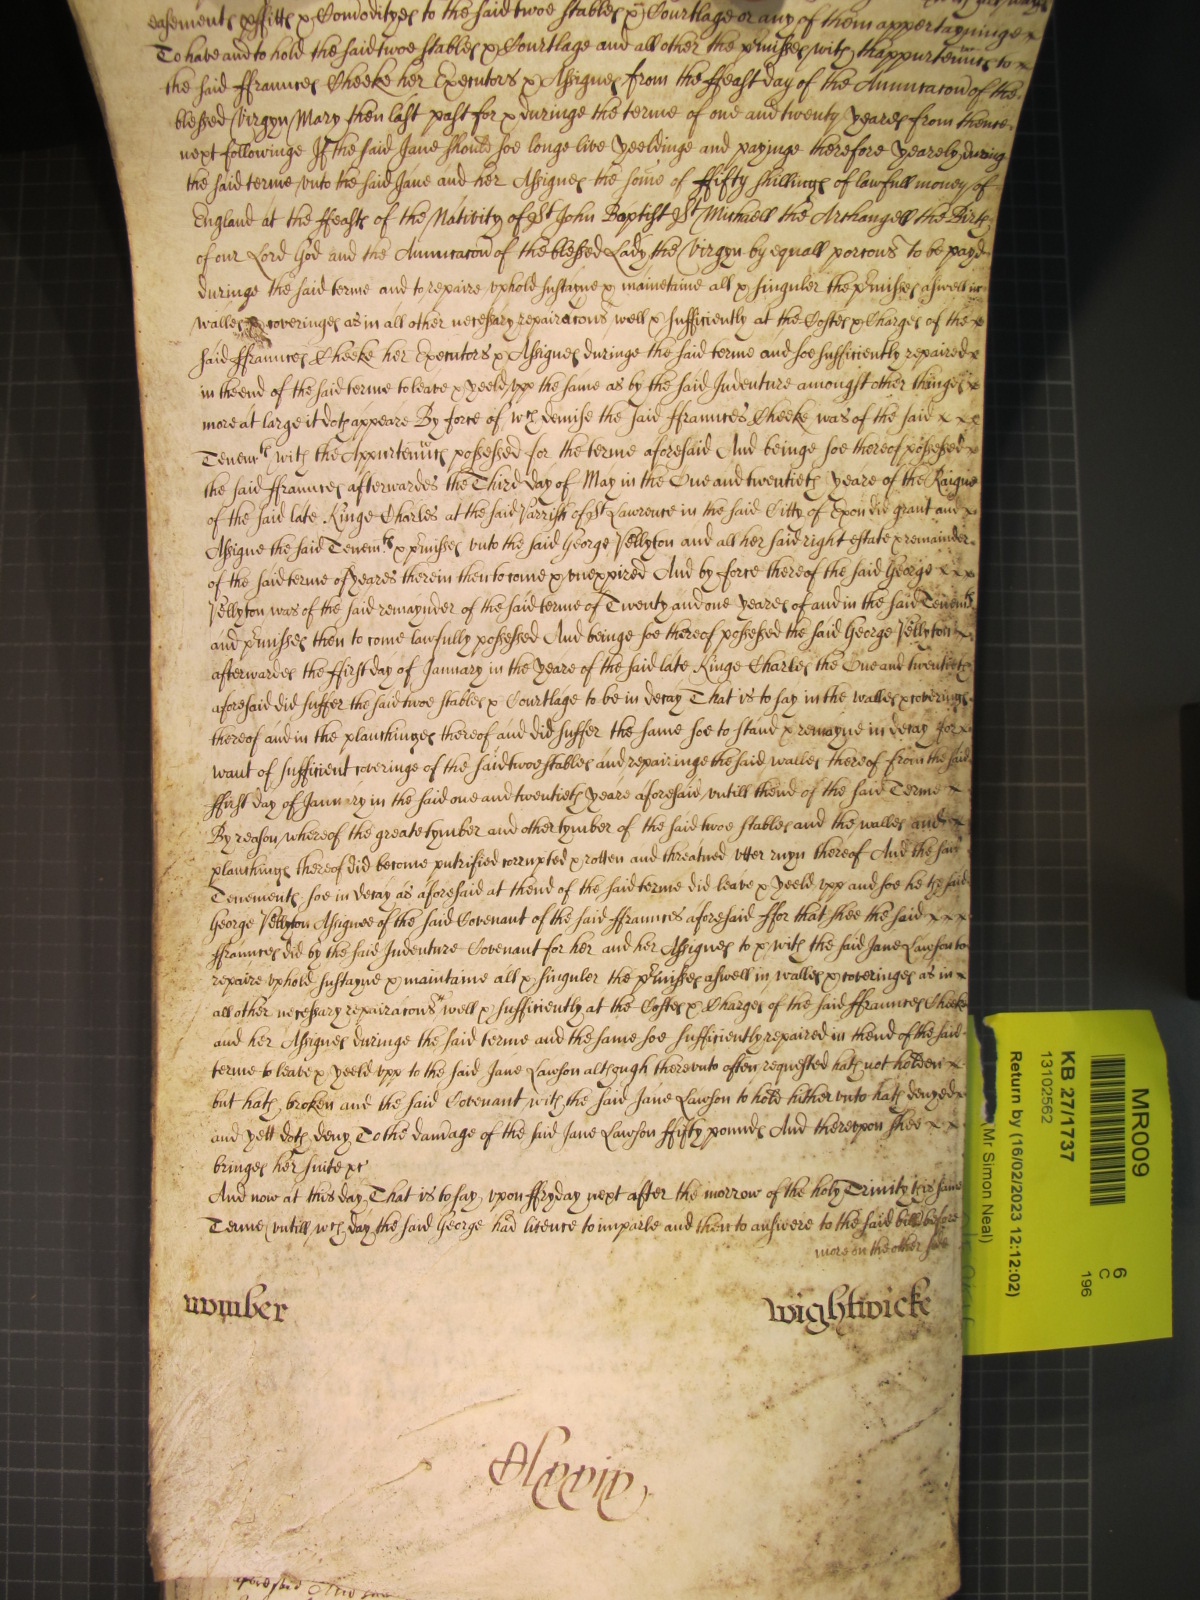 easements proffitts & Comodityes to the said twoe stables & Courtlage or any of them appertayninge
To have and to hold the said twoe stables & Courtlage and all other the p'misses with thappurtenncs to
the said ffraunces Cheeke her Executors & Assignes from the ffeast day of the Annuncacon of the
blessed Virgyn Mary then last past for & duringe the terme of one and twenty yeares from thence
next followinge If the said Jane should soe longe live Yeeldinge and payinge therefore yearely during
the said terme vnto the said Jane and her Assignes the some of ffifty shillings of lawfull money of
England at the ffeasts of the Nativity of St John Baptist St Michaell the Archangell the Birth
of our Lord God and the Annuncacon of the blessed Lady the Virgyn by equall porcons to be payd
duringe the said terme and to repaire vphold sustayne & mainetaine all & singuler the p'misses aswell in
walles & coveringes as in all other necessary repairacons well & sufficiently at the Costes & Charges of the
said ffraunces Cheeke her Executors & Assignes duringe the said terme and soe sufficiently repaired
in the end of the said terme to leave & yeeld vpp the same as by the said Indenture amongst other thinges
more at large it doth appeare By force of wch demise the said ffraunces Cheeke was of the said
Tenemts with the Appurtenncs possessed for the terme aforesaid And beinge soe thereof possessed
the said ffraunces afterwardes the Third day of May in the One and twentieth yeare of the Raigne
of the said late Kinge Charles at the said Parrish of St Lawrence in the said Citty of Exon did grant and
Assigne the said Tenemts & p'misses vnto the said George Pellyton and all her said right estate & remainder
of the said terme of yeares therein then to come & vnexpired And by force thereof the said George
Pellyton was of the said remaynder of the said terme of Twenty and one yeares of and in the said Tenemts
and p'misses then to come lawfully possessed And beinge soe thereof possessed the said George Pellyton
afterwardes the ffirst day of January in the yeare of the said late Kinge Charles the One and twentieth
aforesaid did suffer the said twoe stables & Courtlage to be in decay That is to say in the walles & coverings
thereof and in the planchinges thereof and did suffer the same soe to stand & remayne in decay for
want of sufficient coveringe of the said twoe stables and repairinge the said walles thereof from the said
ffirst day of January in the said one and twentieth yeare aforesaid vntill thend of the said Terme
By reason whereof the greate tymber and other tymber of the said twoe stables and the walles and
planchings thereof did become putrified corrupted & rotten and threatned vtter ruyn thereof And the said
Tenements soe in decay as aforesaid at thend of the said terme did leave & yeeld vpp and soe he the said
George Pellyton Assignee of the said Covenant of the said ffraunces aforesaid ffor that shee the said
ffraunces did by the said Indenture Covenant for her and her Assignes to & with the said Jane Lawson to
repaire vphold sustayne & maintaine all & singuler the p'misses aswell in walles & coveringes as in
all other necessary repairacons well & sufficiently at the Costes & Charges of the said ffraunces Cheeke
and her Assignes duringe the said terme and the same soe sufficiently repaired in thend of the said
terme to leave & yeeld vpp to the said Jane Lawson although therevnto often requested hath not holden
but hath broken and the said Covenant with the said Jane Lawson to hold hitherunto hath denyed
and yett doth deny To the damage of the said Jane Lawson ffifty pounds And therevpon shee
bringes her suite &c
And now at this day That is to say vpon ffryday next after the morrow of the holy Trinity this same
Terme vntill wch day the said George had licence to imparle and then to answere to the said bill before
more on the other side
wightwicke
MR009
KB 27/1737
13102562
Return by (16/02/2023 12:12:02)
Mr Simon Neal)
6
C
196